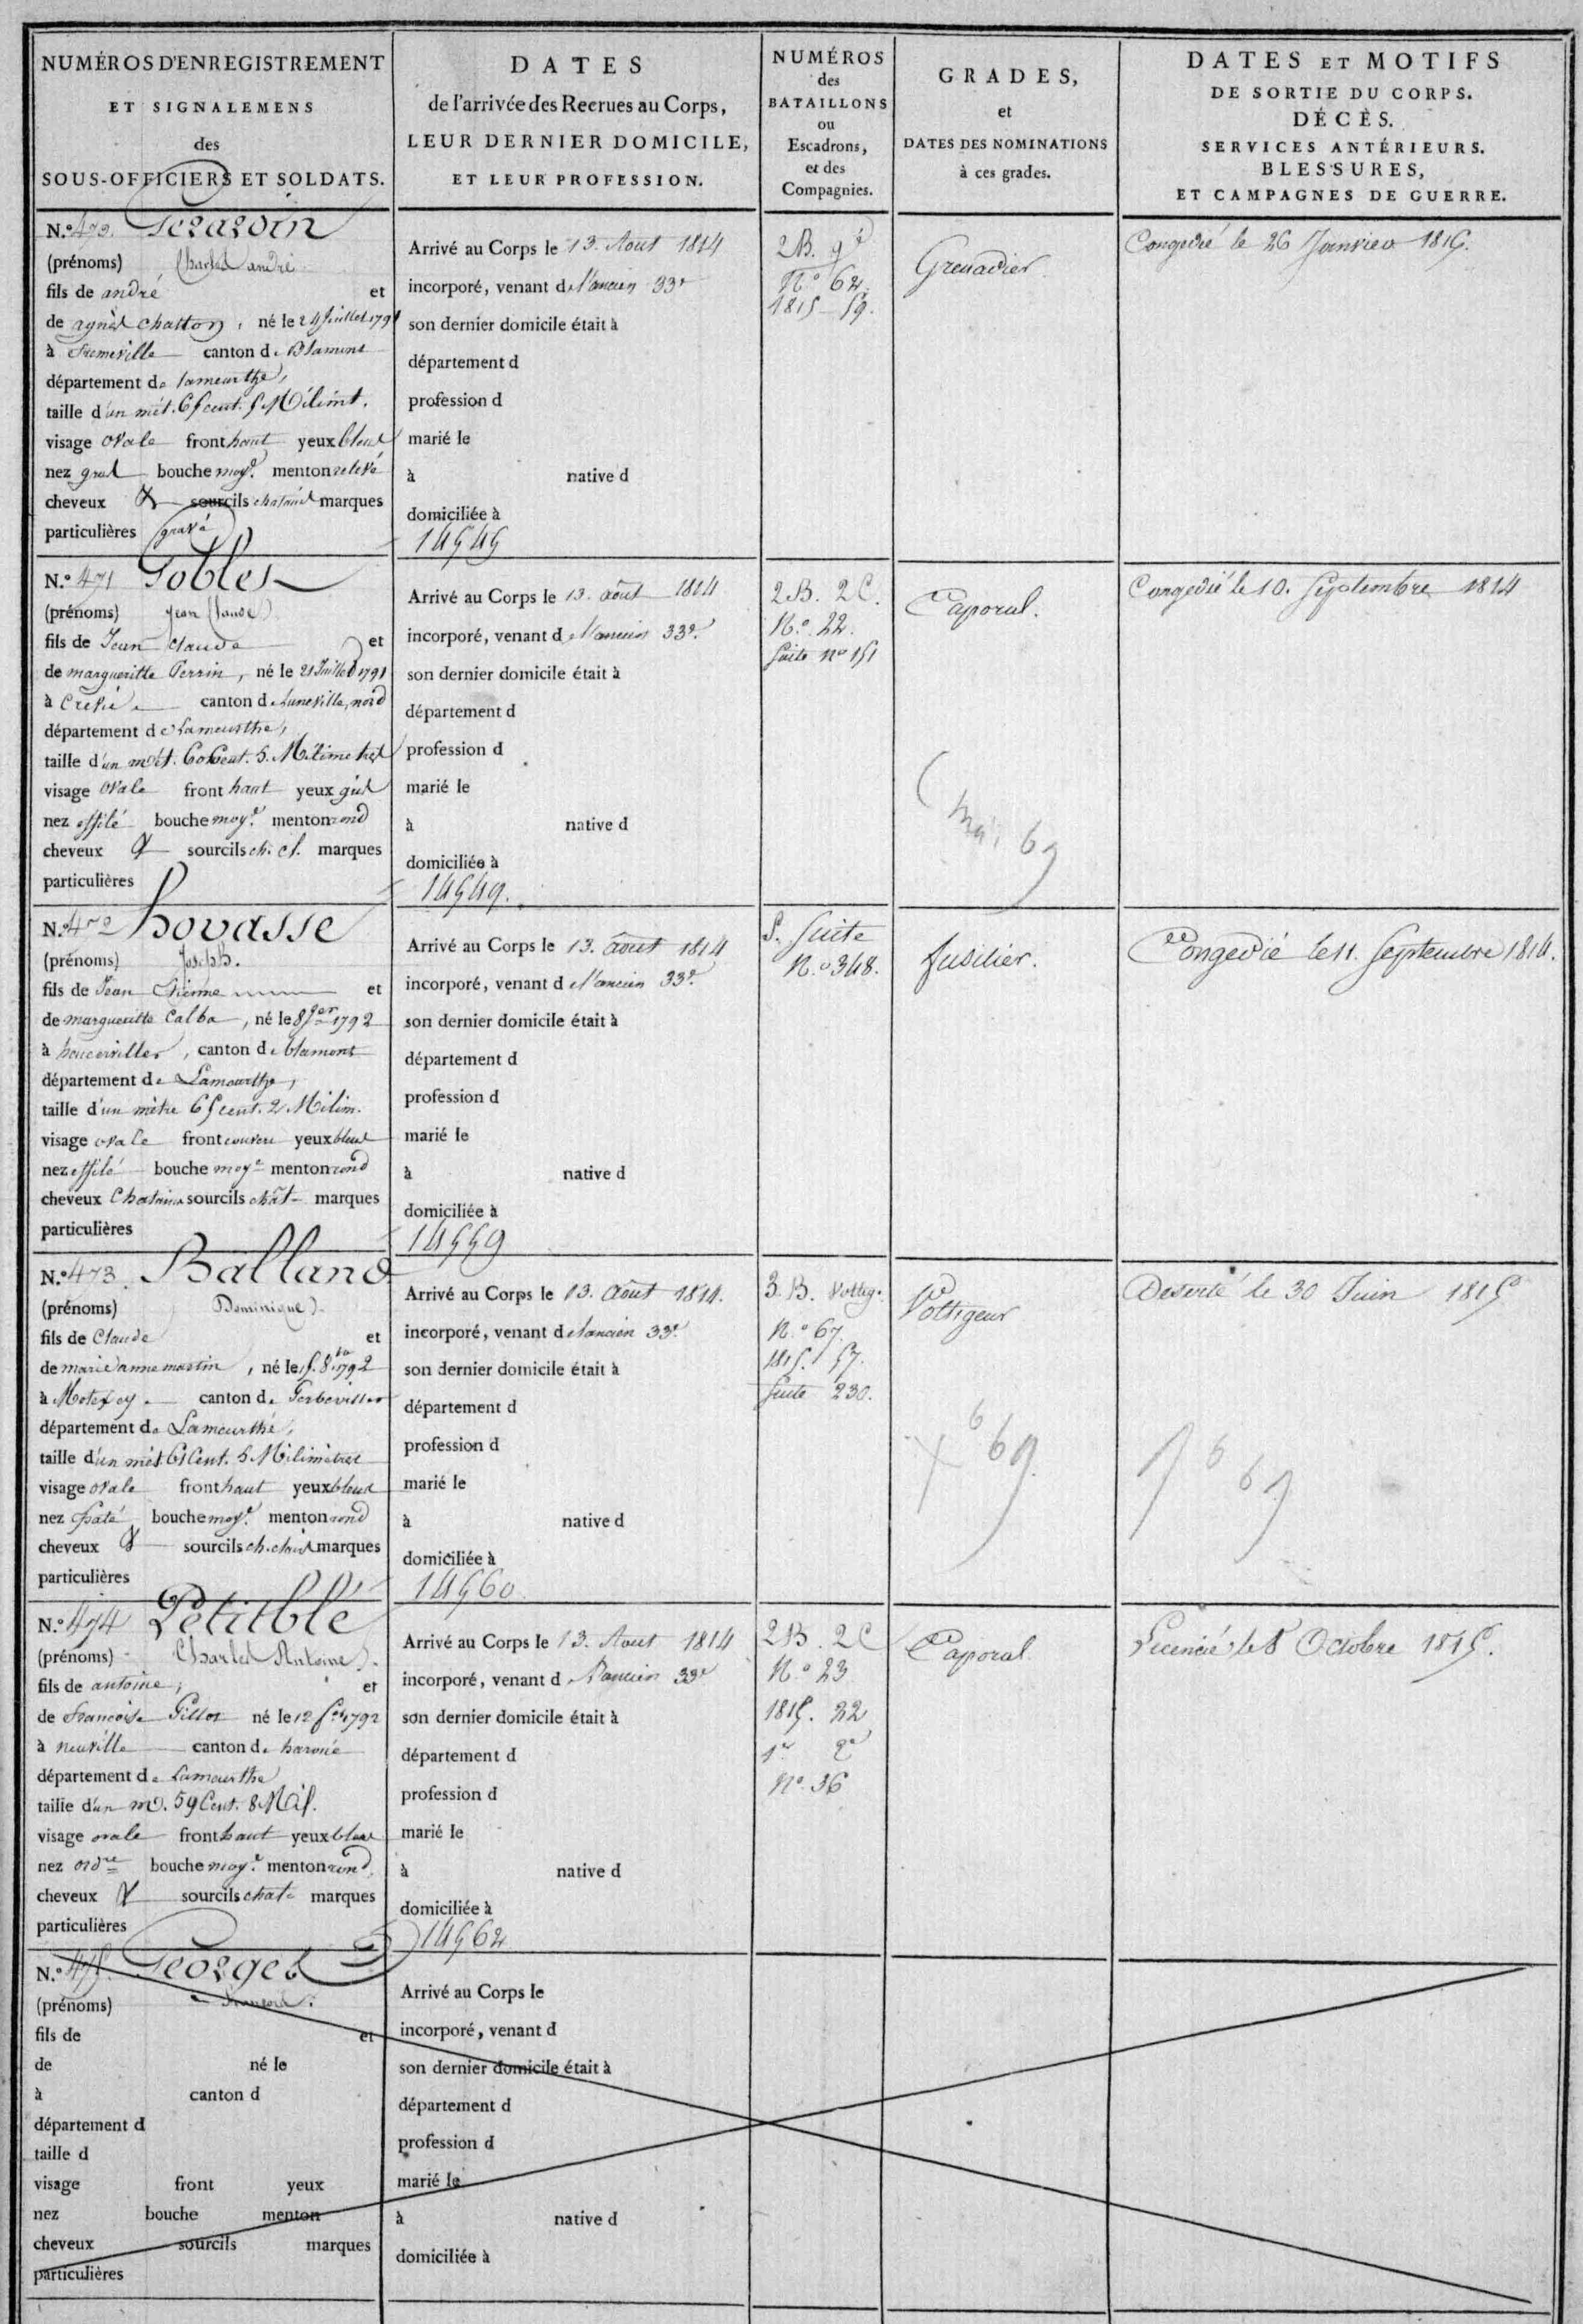 NUMÉROS D'ENREGISTREMENT
ET SIGNALEMENS
des
SOUS-OFFICIERS ET SOLDATS.
DATES
de l'arrivée des Recrues au Corps,
LEUR DERNIER DOMICILE,
ET LEUR PROFESSION.
NUMÉROS
des
BATAILLONS
ou
Escadrons,
et des
Compagnies.
GRADES,
et
DATES DES NOMINATIONS
à ces grades.
DATES ET MOTIFS
DE SORTIE DU CORPS.
DÉCÈS.
SERVICES ANTÉRIEURS.
BLESSURES,
ET CAMPAGNES DE GUERRE.
N.º
(prénoms) Charles andré
fils de andré et
de agnès chatton, né le 24 Juillet 1791
à fremeville canton de Blamont
département de lameurthe,
taille d'un mét. 65 cent. 5 Milimt.
visage ovale front haut yeux bleus
nez gros bouche moy.e menton relevé
cheveux sourcils chatains marques
particulières gravé
Arrivé au Corps le 13. Aout 1814
incorporé, venant de l'ancien 33e
son dernier domicile était à
département d
profession d
marié le
à native d
domiciliée à
14545
2 B. gr
N.º 62.
1815 59.
Grenadier
Congedié le 26 Janvier 1815.
N.º 471 Gobles
(prénoms) Jean Claude
fils de Jean claude et
de margueritte Perrin, né le 21 Juillet 1791
à Crévié canton de luneville, nord
département de lameurthe,
taille d'un mét. 60 Cent. 5. Milimetres
visage ovale front haut yeux gris
nez effilé bouche moy.e menton rond
cheveux sourcils ch. cl. marques
particulières
Arrivé au Corps le 13. aout 1814
incorporé, venant de l'ancien 33e.
son dernier domicile était à
département d
profession d
marié le
à native d
domiciliée à
14549.
2 B. 2 C.
N.º 22.
Suite nº 151
Caporal.
69
Congedié le 10. Septembre 1814
N.º 472 hovasse
(prénoms) Joseph.
fils de Jean Etienne et
de margueritte Calba, né le 8 1792
à canton de blamont
département de Lameurthe,
taille d'un mètre 65 cent. 2 Milim.
visage ovale front couvert yeux bleus
nez effilé bouche moy.e menton rond
cheveux Chatains sourcils chât marques
particulières
Arrivé au Corps le 13. aout 1814
incorporé, venant de l'ancien 33e.
son dernier domicile était à
département d
profession d
marié le
à native d
domiciliée à
14559
S. Suite
N.º 348.
fusilier.
Congedié le 11. Septembre 1814.
N.º 473. Balland
(prénoms) Dominique
fils de Claude et
de marie anne martin, né le 5. 8.bre 1792
à canton de Gerbeviller
département de Lameurthe,
taille d'un mét. 61 Cent. 5 Milimètres
visage ovale front haut yeux bleus
nez épaté bouche moy.e menton rond
cheveux sourcils ch. clairs marques
particulières
Arrivé au Corps le 13. Aout 1814.
incorporé, venant de l'ancien 33e.
son dernier domicile était à
département d
profession d
marié le
à native d
domiciliée à
14560
3. B. Voltig.
N.º 67.
1815. 57.
Suite 230.
Voltigeur
69
Deserté le 30 Juin 1815
N.º 474 Petitblé
(prénoms) Charles Antoine
fils de antoine, et
de françoise Gillot né le 12 1792
à neuville canton de haroué
département de Lameurthe
taille d'un m. 59 Cent. 8 Mil.
visage ovale front haut yeux bleus
nez ord.re bouche moy.e menton rond
cheveux sourcils chat. marques
particulières
Arrivé au Corps le 13. Aout 1814
incorporé, venant d l'ancien 33e
son dernier domicile était à
département d
profession d
marié le
à native d
domiciliée à
14562
2 B. 2 C
N.º 23
1815. 22
1er 2e
Nº. 36
Caporal
Licencié le 8 Octobre 1815.
N.º 475. Georges
(prénoms)
fils de et
de né le
à canton d
département d
taille d
visage front yeux
nez bouche menton
cheveux sourcils marques
particulières
Arrivé au Corps le
incorporé, venant d
son dernier domicile était à
département d
profession d
marié le
à native d
domiciliée à